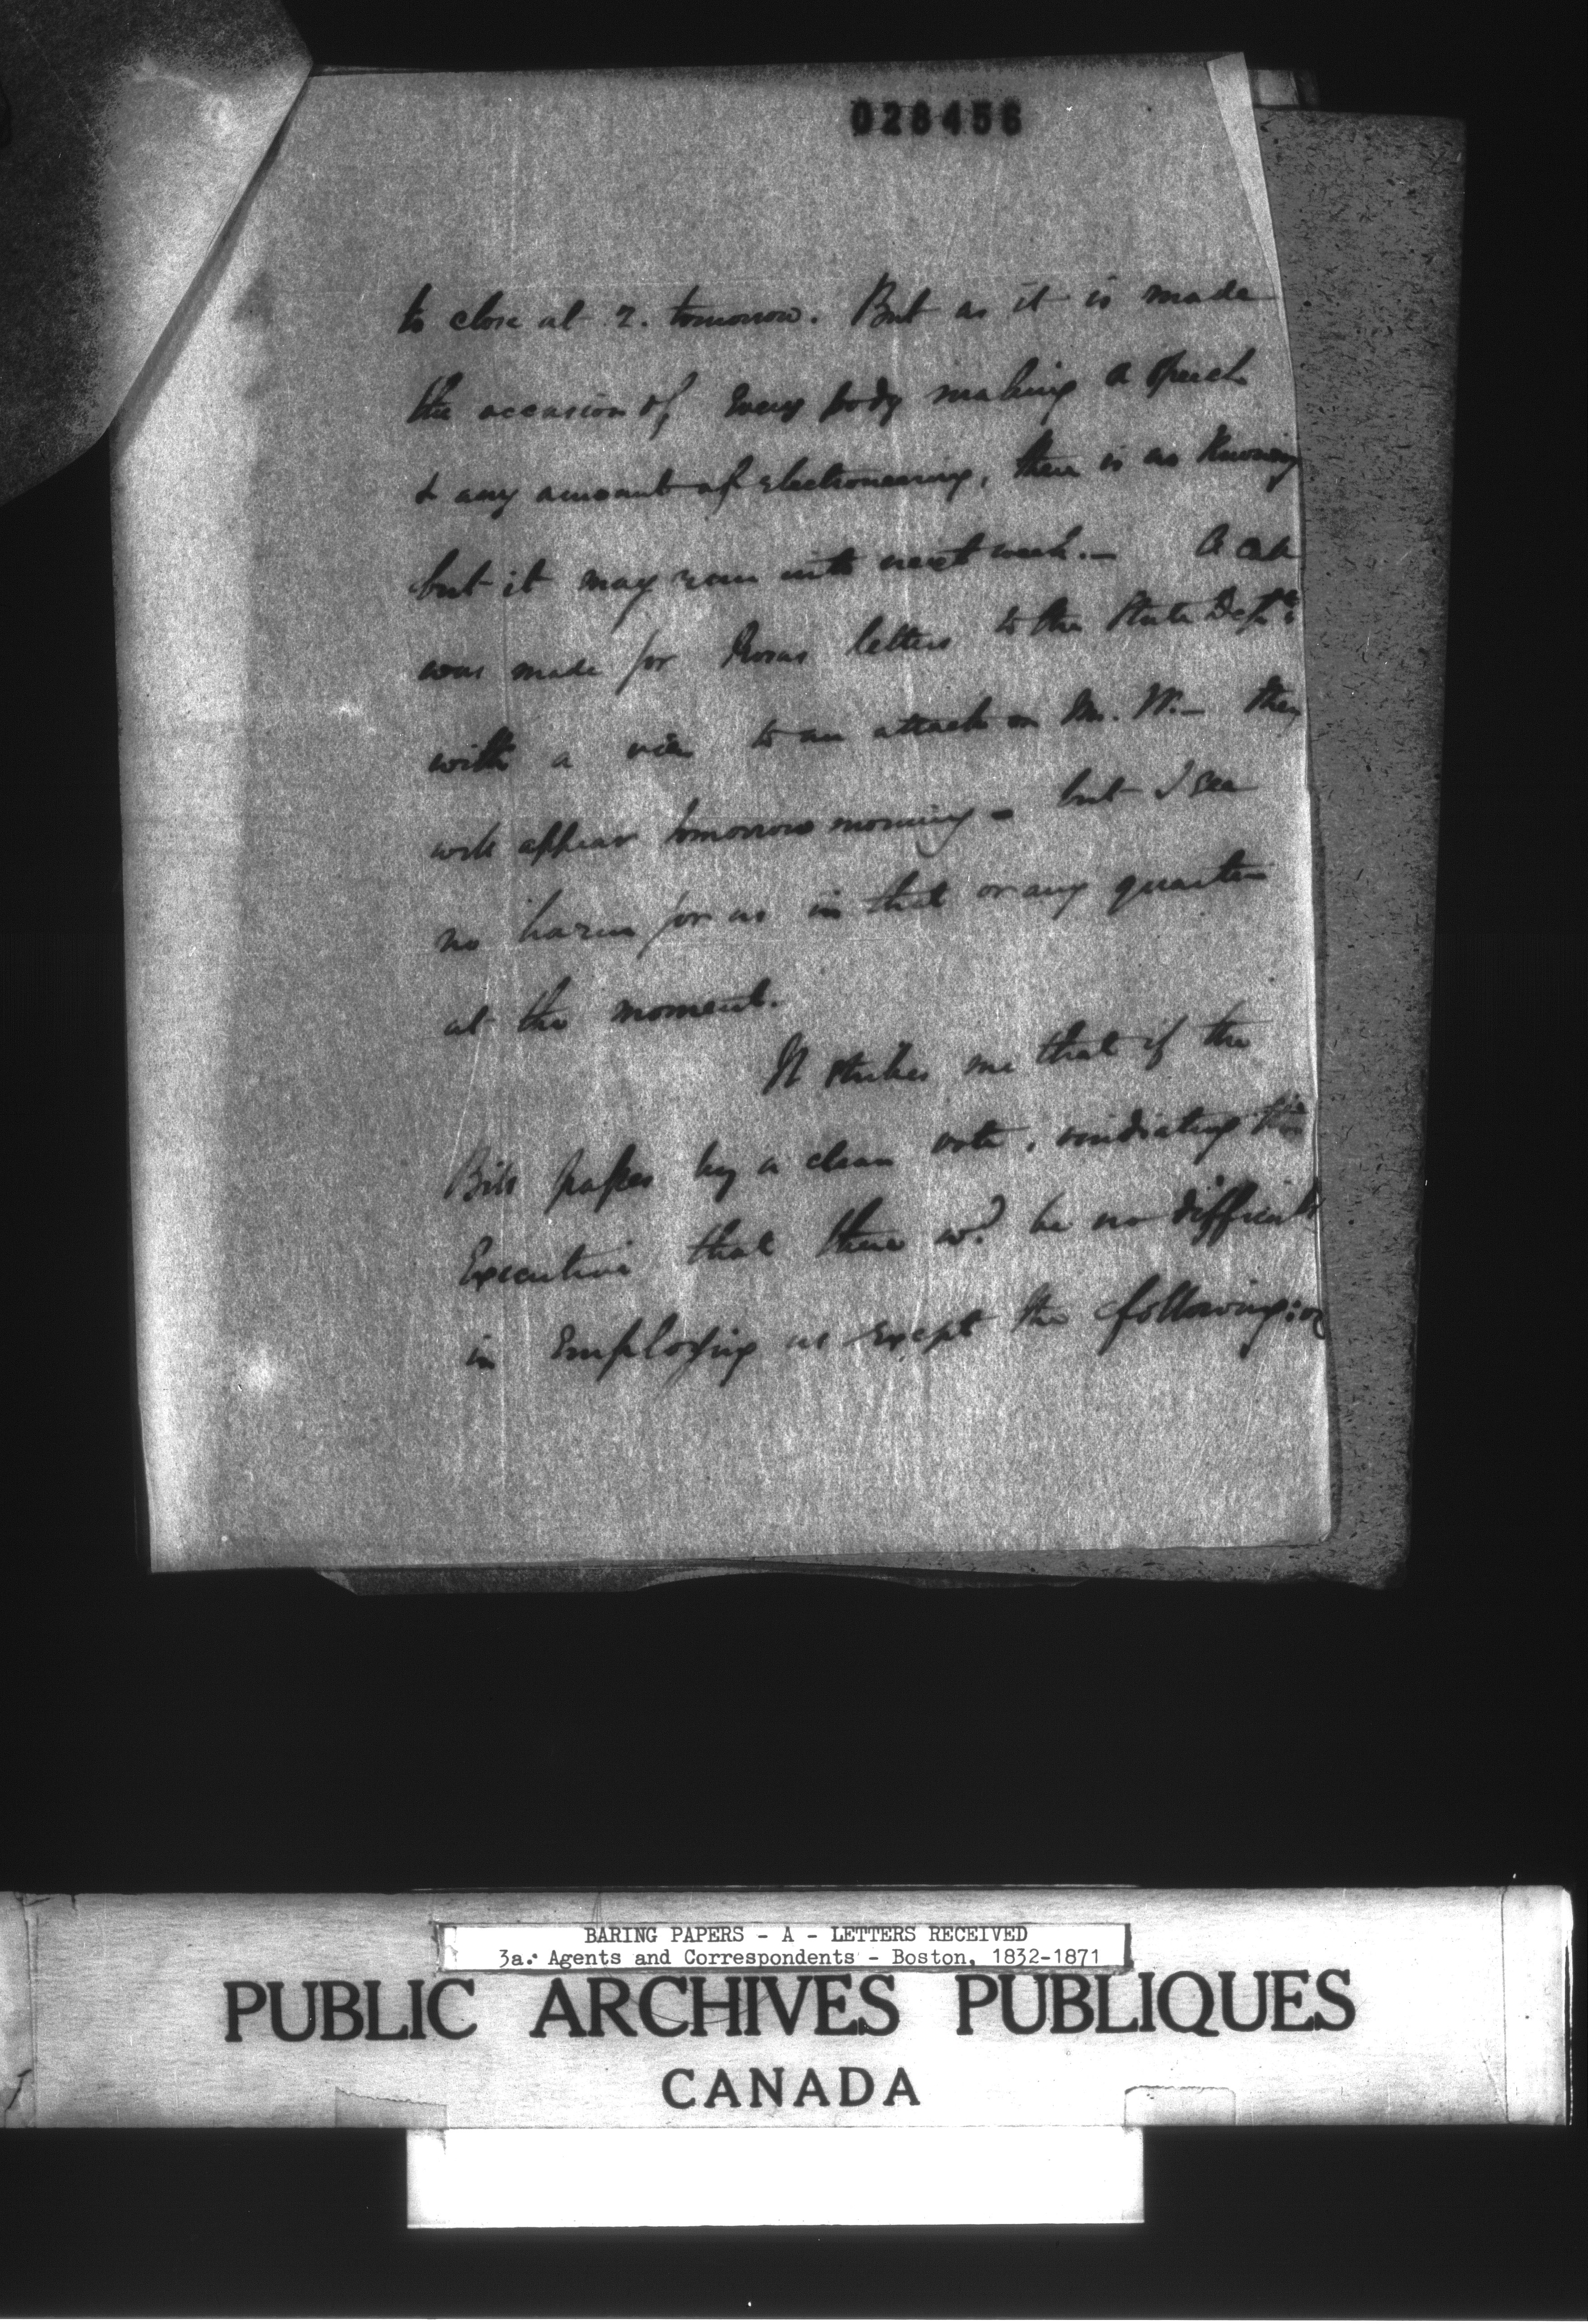 028456
to close at 2. tomorrow. But as it is made
the occasion of, Every body making a speech
& any amount of electioneering, there is no Knowing
but it may run into next week. — A call
was made for letters to the State Dept.
with a view to an attack on Mr. W. — they
will appear tomorrow morning - but I see
no harm for us in that or any quarter
at the moment.
It strikes me that if the
Bill passes by a clean vote, vindicating the
Executive that there wd. be no difficulty
in Employing us except the following: or
BARING PAPERS - A - LETTERS RECEIVED
3a. Agents and Correspondents - Boston, 1832-1871
PUBLIC ARCHIVES PUBLIQUES
CANADA